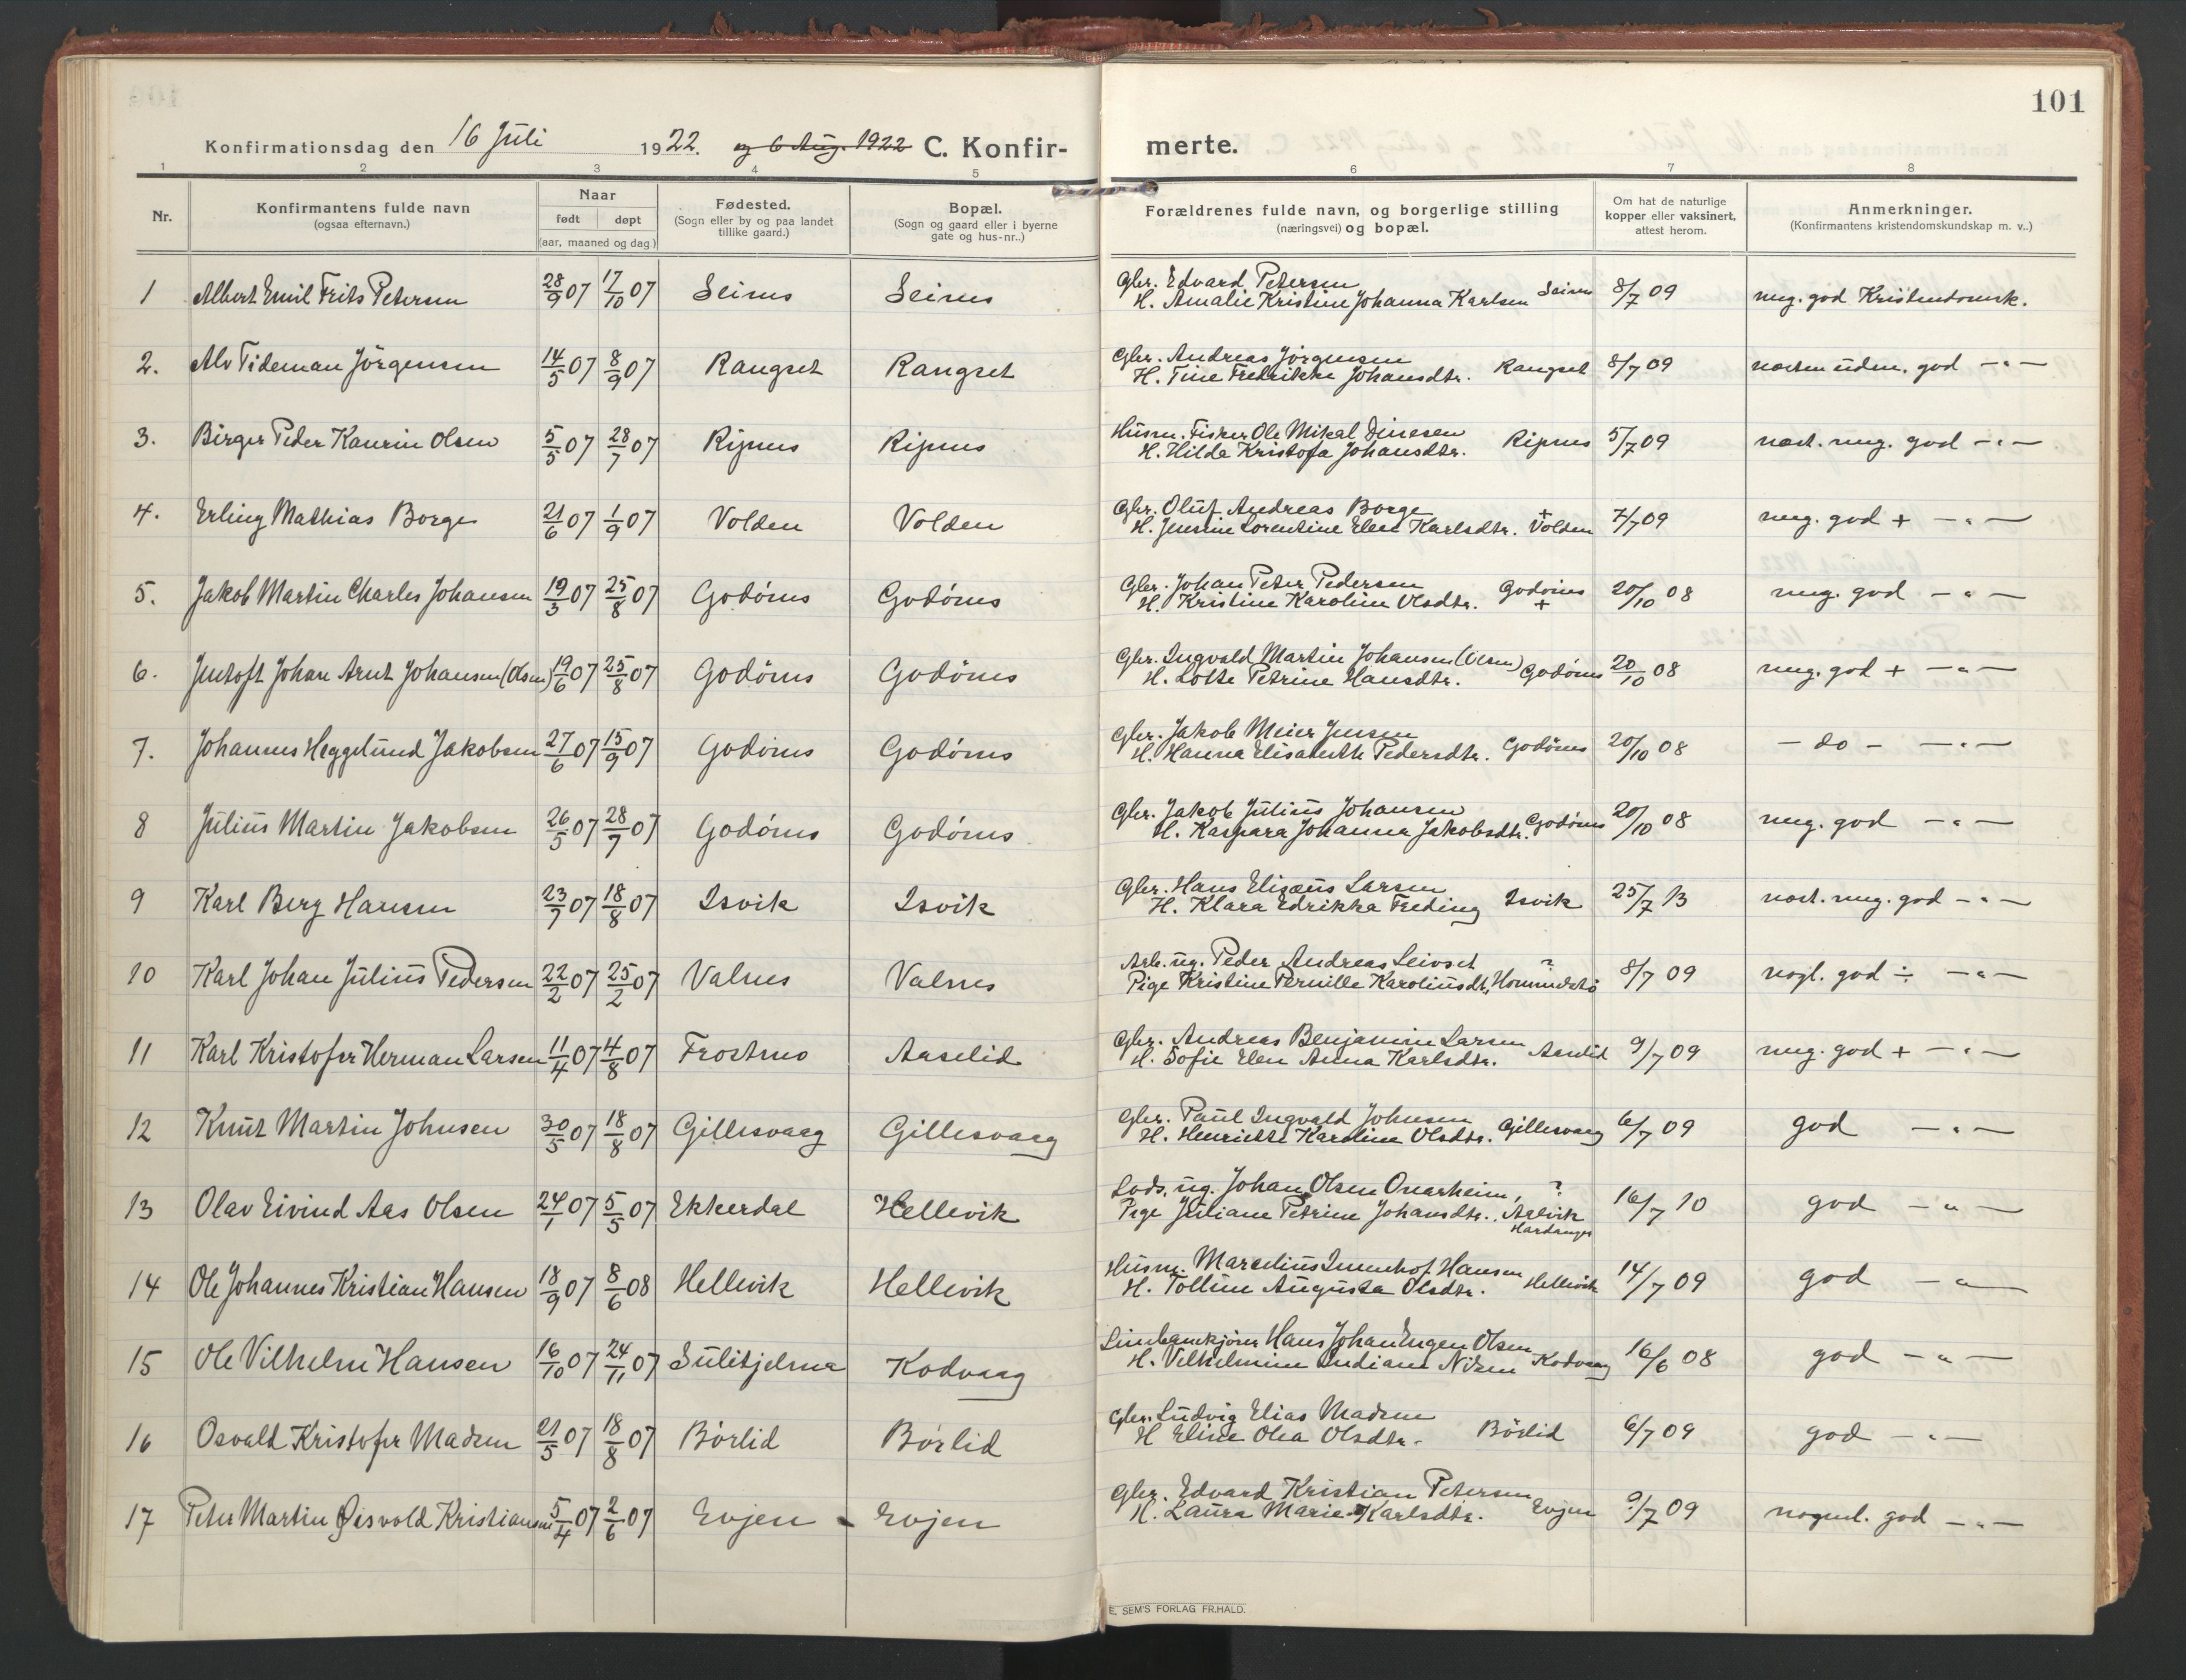 101
Konfirmationsdag den 16 Juli 1922. og 6 Aug. 1922 C. Konfir-merte.
1 2 3 4 5 6 7 8
Nr.
Konfirmantens fulde navn
(ogsaa efternavn.)
Naar
født døpt
(aar, maaned og dag)
Fødested.
(Sogn eller by og paa landet
tillike gaard.)
Bopæl.
(Sogn og gaard eller i byerne
gate og hus-nr..)
Forældrenes fulde navn, og borgerlige stilling
(næringsvei) og bopæl.
Om hat de naturlige
kopper eller vaksinert,
attest herom.
Anmerkninger.
(Konfirmantens kristendomskundskap m. v..)
1 Albert Emil Frits Petersen 28/9 07 17/10 07 Seines Seines Gbr. Edvard Petersen
H. Amalie Kristine Johanna Karlsen Seines 8/7 09 meg. god Kristendomsk.
2. Alv Tideman Jörgensen 14/5 07 8/9 07 Rangset Rangset Gbr. Andreas Jörgensen
H. Tine Fredrikke Johansdtr. Rangset 8/7 09 næsten uden. god — " —
3. Birger Peder Kaurin Olsen 5/5 07 28/7 07 Ripnes Ripnes Husm. Fisker Ole Mikal Dinesen
H. Hilda Kristofa Johansdtr. Ripnes 5/7 09 næst. meg. god — " —
4. Erling Mathias Borge 21/6 07 1/9 07 Volden Volden Gbr. Oluf Andreas Borge +
H. Jensine Lorentine Elen Karlsdtr. Volden 7/7 09 meg. god + — " —
5. Jakob Martin Charles Johansen 19/3 07 25/8 07 Godönes Godönes Gbr. Johan Peter Pedersen Godönes
H. Kristine Karoline Olsdtr. + 20/10 08 meg. god — " —
6. Jentoft Johan Arnt Johansen (Olsen) 19/6 07 25/8 07 Godönes Godönes Gbr. Ingvald Martin Johansen (Olsen)
H. Lotte Petrine Hansdtr. Godönes 20/10 08 meg. god + — " —
7. Johannes Heggelund Jakobsen 27/6 07 15/9 07 Godönes Godönes Gbr. Jakob Meier Jensen
H. Hanna Elisabeth Pedersdtr. Godönes 20/10 08 — do — — " —
8 Julius Martin Jakobsen 26/5 07 28/7 07 Godönes Godönes Gbr. Jakob Julius Johansen
H. Kaspara Johanna Jakobsdtr. Godönes 20/10 08 meg. god — " —
9 Karl Berg Hansen 23/7 07 18/8 07 Isvik Isvik Gbr. Hans Elisæus Larsen
H. Klara Edrikka Freding Isvik 25/7 13 næst. meg. god — " —
10 Karl Johan Julius Pedersen 22/2 07 25/2 07 Valnes Valnes Arb. ug. Peder Andreas Leivset ?
Pige Kristine Pernille Karoliusdtr, 8/7 09 nogl. god ÷ — " —
11 Karl Kristofer Herman Larsen 11/4 07 4/8 07 Frostmo Aaselid Gbr. Andreas Benjamin Larsen
H. Sofie Elen Anna Karlsdtr. Aaselid 9/7 09 meg. god + — " —
12 Knut Martin Johnsen 30/5 07 18/8 07 Gillesvaag Gillesvaag Gbr. Paul Ingvald Johnsen
H. Henriette Karoline Olsdtr. Gillesvaag 6/7 09 god — " —
13 Olav Eivind Aas Olsen 24/1 07 5/5 07 Ekkerdal Hellevik Lods, ug. Johan Olsen Onarheim, ?
Pige Juliane Petrine Johansdtr., Aalvik
Hardanger 16/7 10 god — " —
14 Ole Johannes Kristian Hansen 18/9 07 8/6 08 Hellevik Hellevik Husm. Marselius Immenhof Hansen
H. Tolline Augusta Olsdtr. Hellevik 14/7 09 god — " —
15 Ole Vilhelm Hansen 16/10 07 24/11 07 Sulitjelma Kodvaag Linbanekjörer Hans Johan Eugen Olsen
H. Vilhelmine Indiane Nilsen Kodvaag 16/6 08 god — " —
16 Osvald Kristofer Madsen 21/5 07 18/8 07 Börlid Börlid Gbr. Ludvig Elias Madsen
H Eline Olea Olsdtr. Börlid 6/7 09 god — " —
17 Peter Martin Øisvold Kristiansen 5/4 07 2/6 07 Evjen - Evjen Gbr. Edvard Kristian Petersen
H. Laura Marie Karlsdtr. Evjen 9/7 09 nogenl. god — " —
E. SEM'S FORLAG FR.HALD.